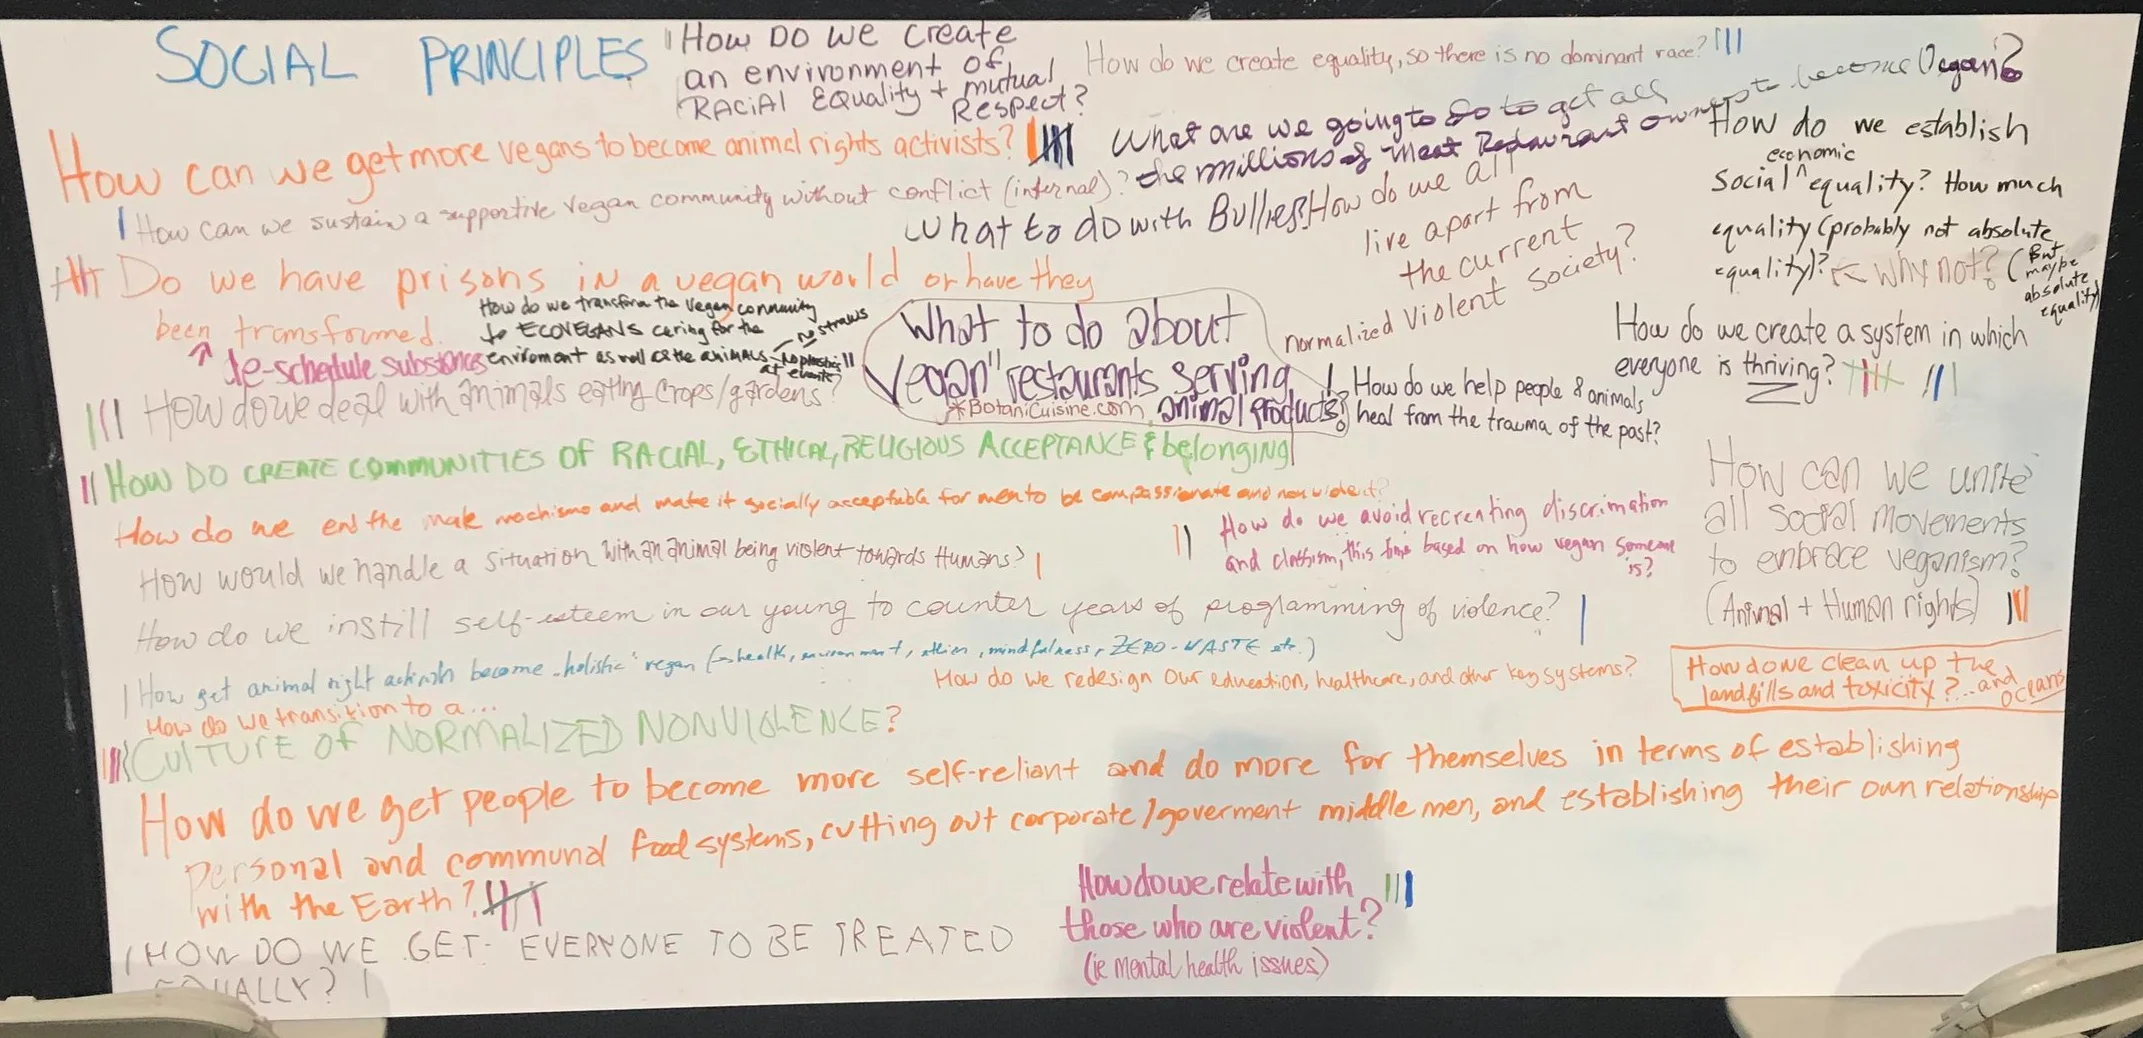 SOCIAL PRINCIPLES
How DO we Create
an environment of
RACIAL EQUALITY + mutual
Respect?
How do we create equality, so there is no dominant race?
What are we going to do to get all
the millions of meat Restaurant owners to become Vegan?
How can we get more vegans to become animal rights activists?
How can we sustain a supportive vegan community without conflict (internal)?
What to do with Bullies?
How do we all
live apart from
the current
normalized violent society?
How do we establish
economic
social ^ equality? How much
equality (probably not absolute
equality)? ← Why not? (But
maybe
absolute
equality)
Do we have prisons in a vegan world or have they
been transformed.
↑ de-schedule substances
How do we transform the vegan community
to ECOVEGANS caring for the
enviroment as well as the animals
no straws
no plastic
at events
What to do about
Vegan" restaurants serving
animal products?
*BotaniCuisine.com
How do we create a system in which
everyone is thriving?
How do we help people & animals
heal from the trauma of the past?
How do we deal with animals eating crops/gardens?
HOW DO CREATE COMMUNITIES OF RACIAL, ETHICAL, RELIGIOUS ACCEPTANCE & belonging
How do we end the male machismo and make it socially acceptable for men to be compassionate and nonviolent?
How would we handle a situation with an animal being violent towards Humans?
How do we avoid recreating discrimation
and classism, this time based on how vegan someone
is?
How can we unite
all social movements
to embrace veganism?
(Animal + Human rights)
How do we instill self-esteem in our young to counter years of programming of violence?
How get animal right activists become "holistic" vegan (→ health, environment, ethics, mindfulness, ZERO-WASTE etc.)
How do we redesign our education, healthcare, and other key systems?
How do we clean up the
landfills and toxicity? ...and
oceans
How do we transition to a...
CULTURE OF NORMALIZED NONVIOLENCE?
How do we get people to become more self-reliant and do more for themselves in terms of establishing
personal and communal food systems, cutting out corporate/goverment middle men, and establishing their own relationship
with the Earth?
How do we relate with
those who are violent?
(ie mental health issues)
HOW DO WE GET EVERYONE TO BE TREATED
EQUALLY?